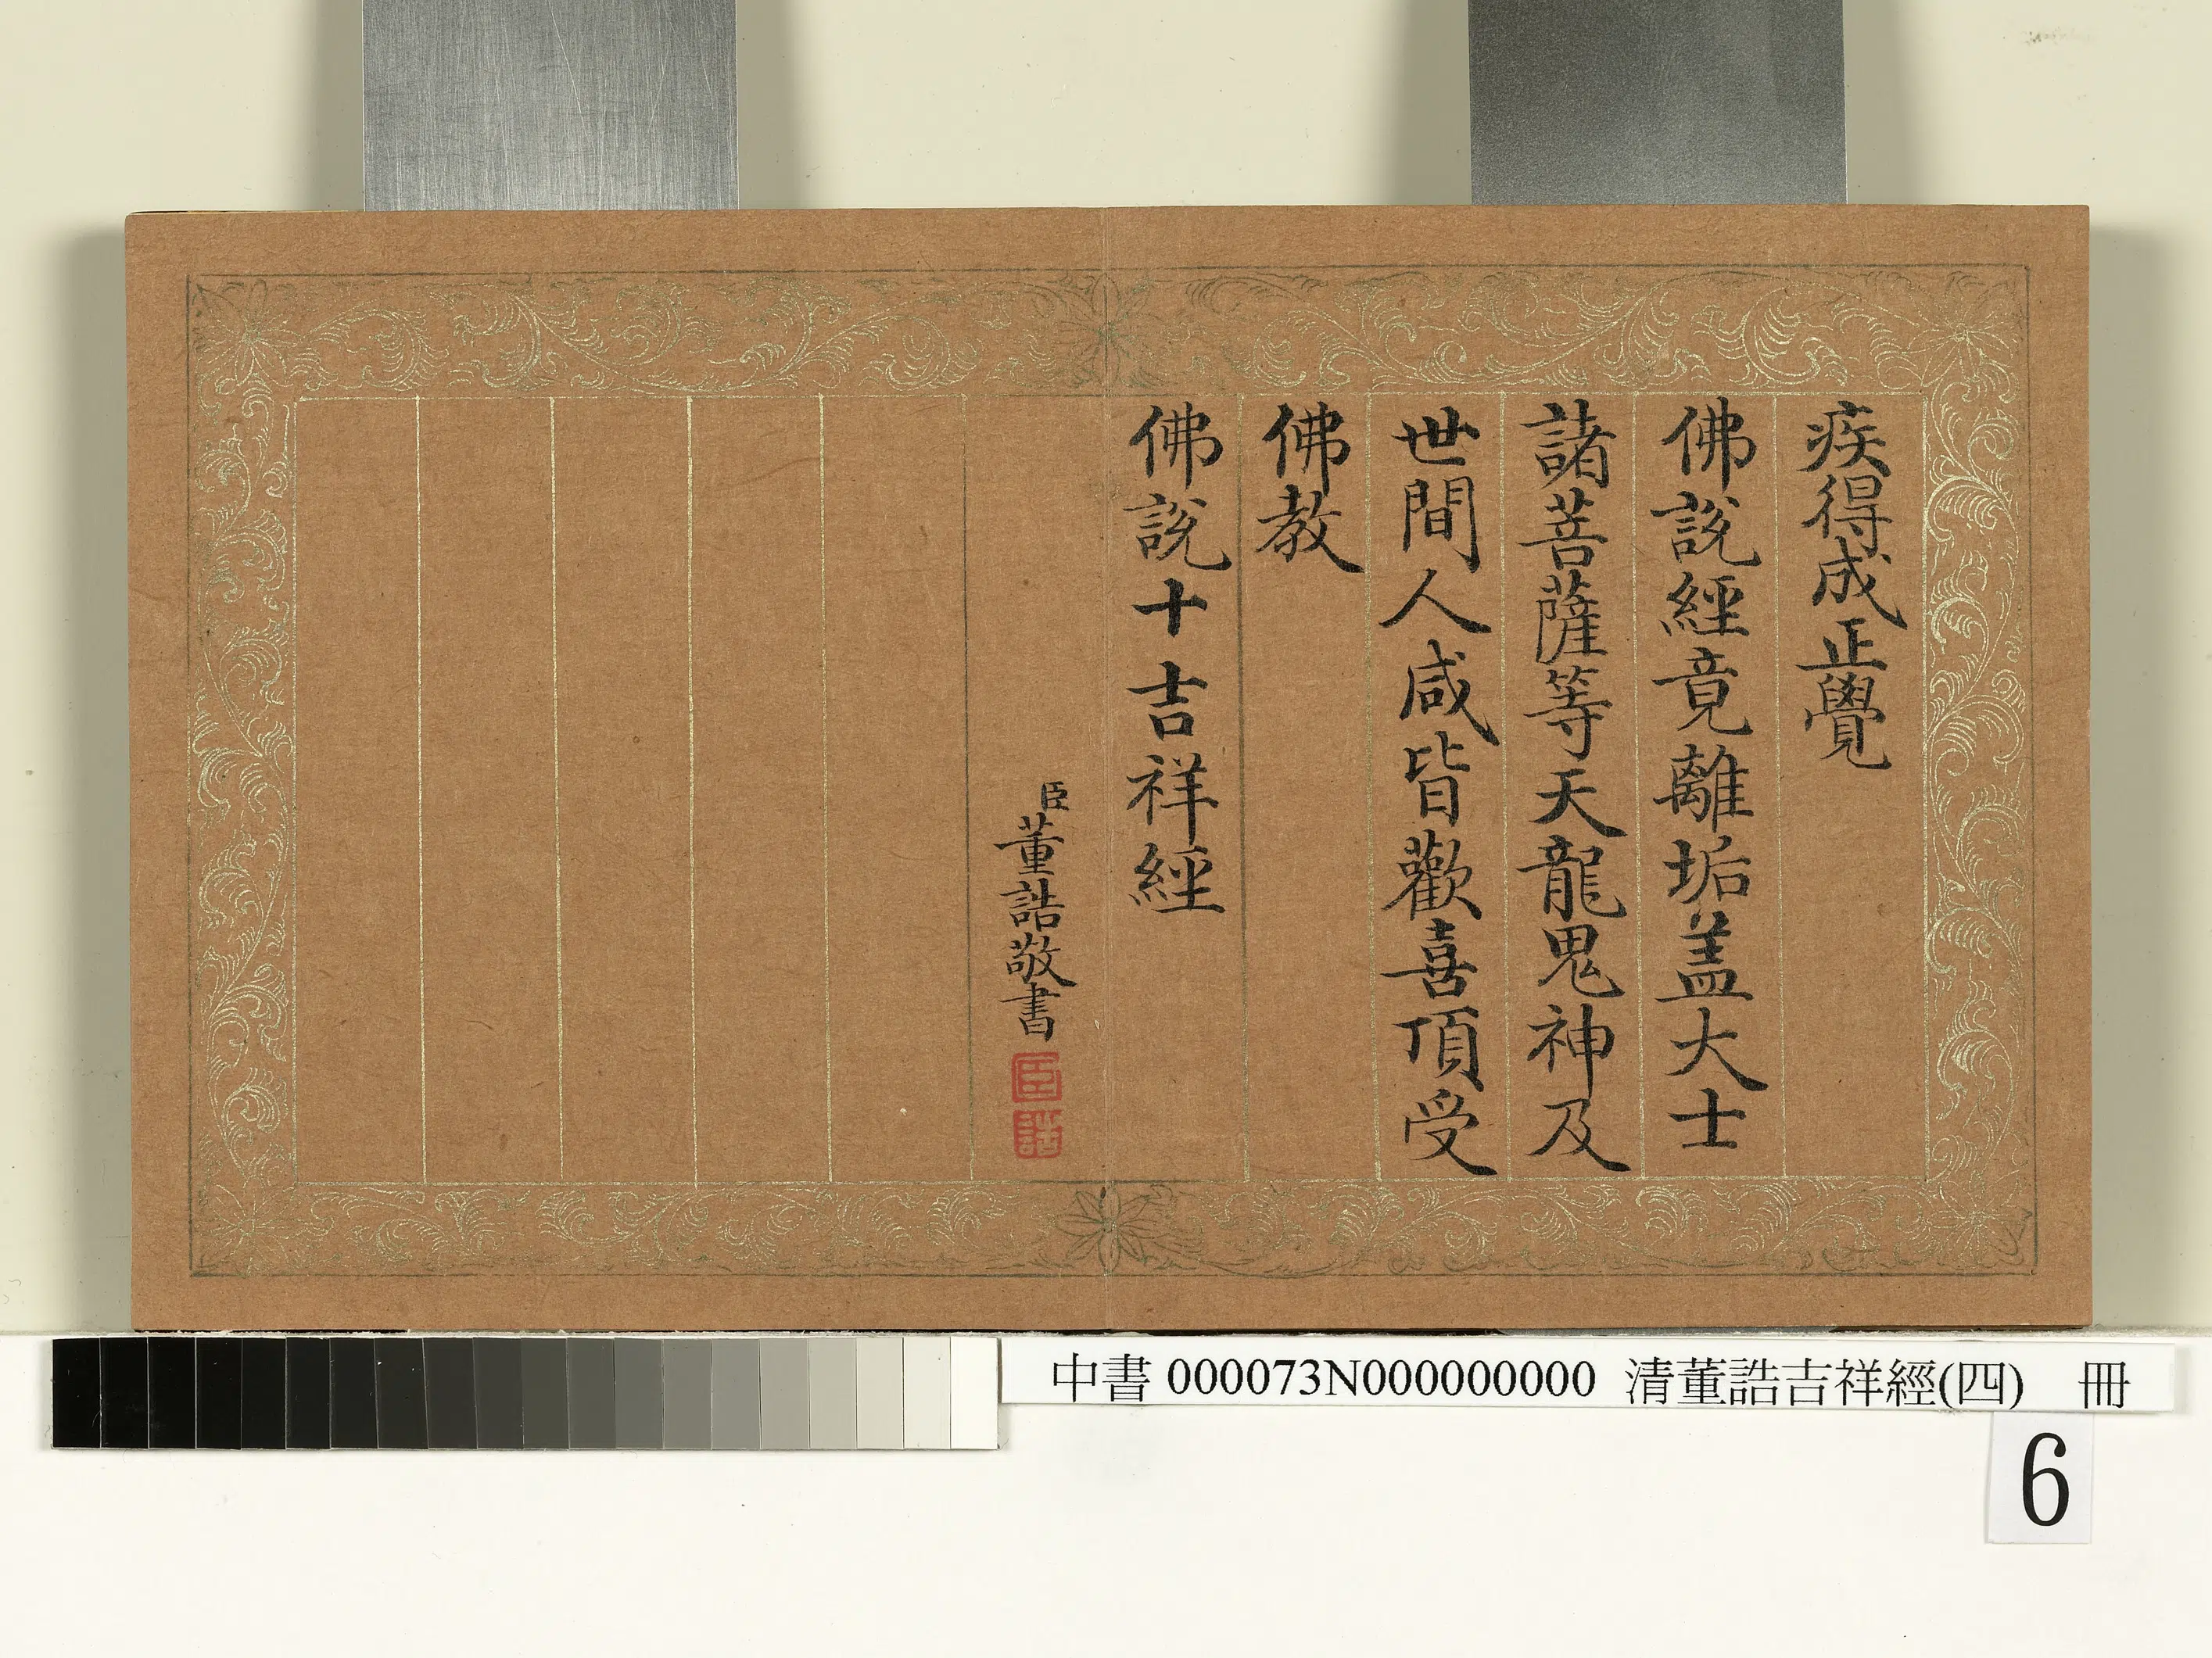 疾得成正覺
佛說經竟離垢盖大士
諸菩薩等天龍鬼神及
世間人咸皆歡喜頂受
佛教
佛說十吉祥經
臣董誥敬書
臣
誥
中書 000073N000000000 清董誥吉祥經(四) 冊
6